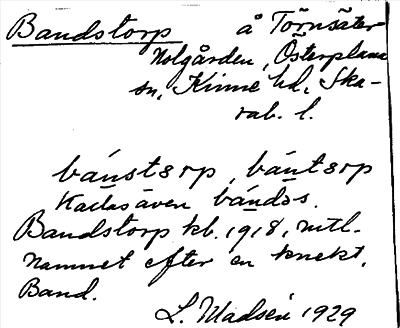 Bandstorp å Törnsäter-
Nolgården, Österplana
sn, Kinne hd, Ska-
rab. l.
bánstorp, bántorp
Kallas även bándås.
Bandstorp kb. 1918, mtl.
Namnet efter en knekt,
Band.
L. Madsén 1929